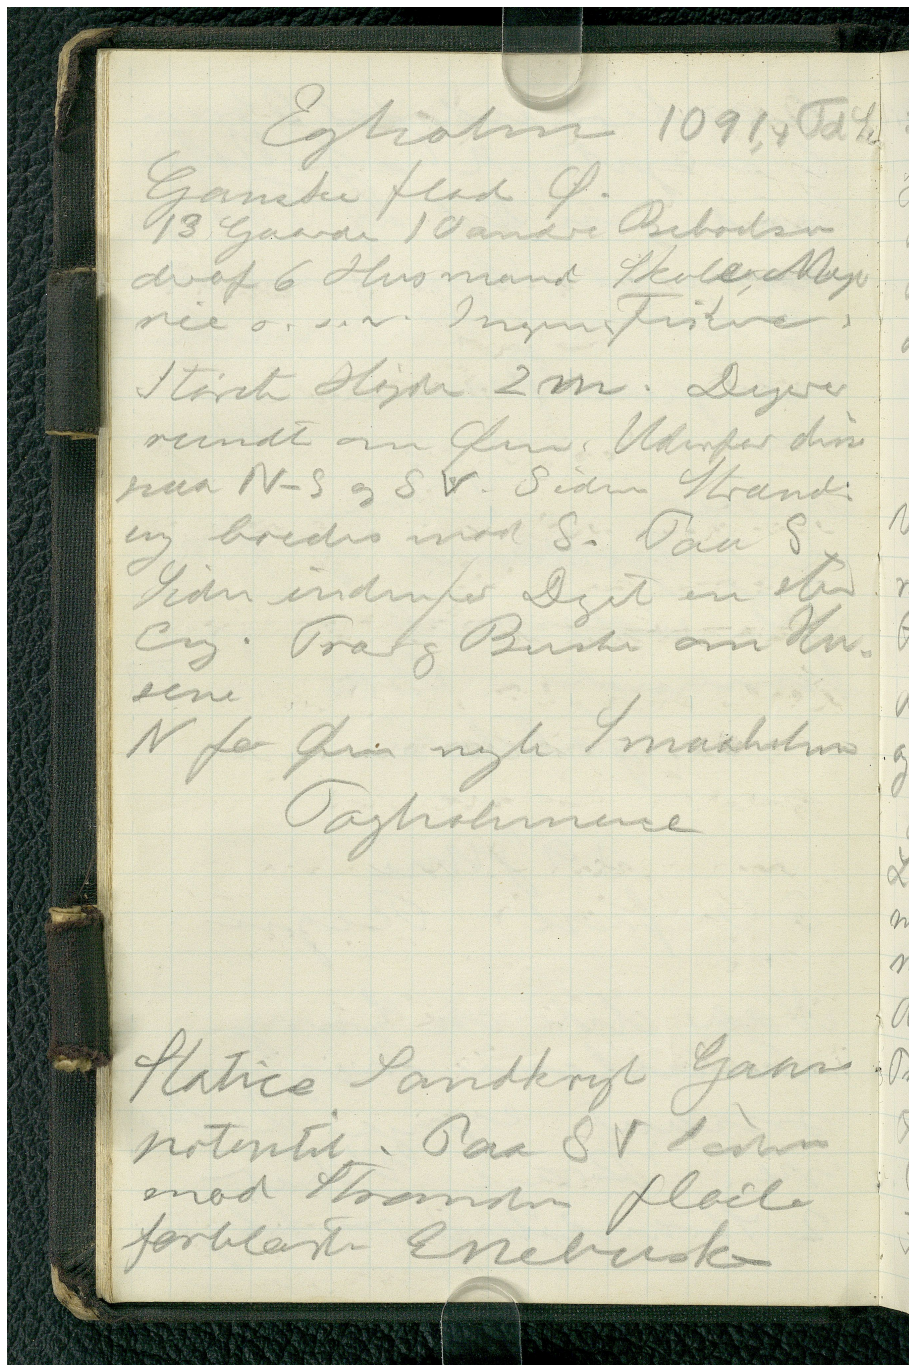 Egholm 1091,4 Td L
Ganske flad Ø.
13 Gaarde 10 andre Beboelser
deraf 6 Husmænd Skole, Meje
rie o. s. v. Ingen Fiskere.
Største Højde 2 m. Diger
rundt om Øen. Udenfor disse
paa N-S og SV. Siden Strand
eng bredes mod S. Paa S
Siden indenfor Diget en stor
Eng. Træ og Buske om Hu-
sene
N for Øen nogle Smaaholme
Tagholmene
Statice Sandkryb Gaase
potentil. Paa SV Siden
mod Stranden flade
forblæste Enebusk